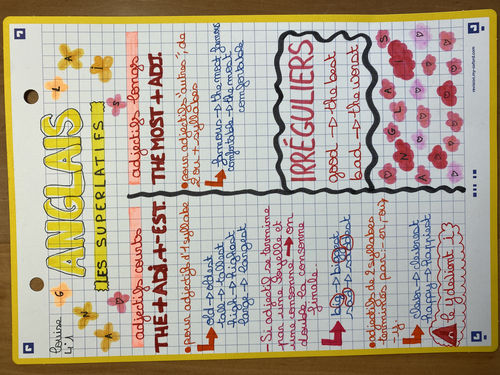 Louise
4°1
ANGLAIS
LES SUPERLATIFS.
adjectifs courts
THE+ADJ+-EST.
• pour adjectif d'1 syllabe
old → oldest
tall → tallest
high → highest
large → largest
- Si adjectif se termine
par une voyelle et
une consonne → on
double la consonne
finale.
big → biggest
• adjectifs de 2 syllabes
terminées par: -er, ow,
-y
happy → happiest
le y devient i
adjectifs longs
THE MOST + ADJ.
• pour adjectifs "autres", de
2 ou + syllabes
famous → the most famous
comfortable → the most
comfortable
IRRÉGULIERS
good → the best
bad → the worst
A N G L A I S
revision.my-oxford.com